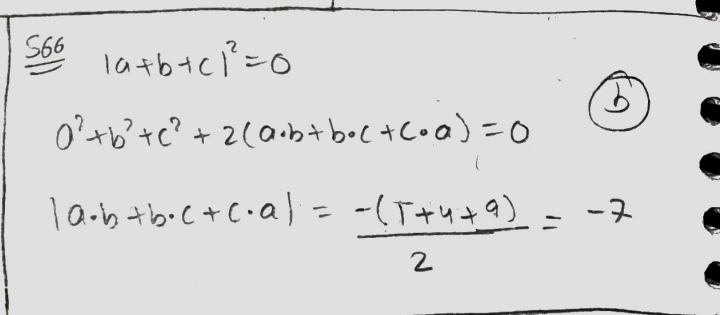 S66
|a+b+c|²=0
a²+b²+c²+2(a·b+b·c+c·a)=0
b
|a·b+b·c+c·a| = -(1+4+9)/2 = -7